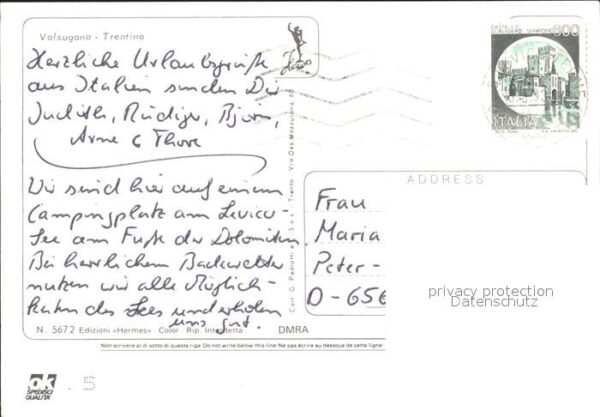 Valsugana - Trentino
Herzliche Urlaubsgrüße
aus Italien senden Dir
Judith, Rüdiger, Bjørn,
Arne & Thore
Wir sind hier auf einem
Campingplatz am Levico-
See am Fuße der Dolomiten.
Bei herrlichem Badewetter
nutzen wir alle Möglich-
keiten des Sees und erholen
uns gut.
N. 5672 Edizioni «Hermes» Color Rip. Interdetta DMRA
Non scrivere al di sotto di questa riga Do not write below this line Ne pas écrire au dessous de cette ligne
ok
SPEDISCI
QUALITÀ
5
Cart. G. Pedrotti S.a.s. - Trento - Via Das Mazzurana, 60
CASTELLO
SCALIGERO SIRMIONE
600
ITALIA
ADDRESS
Frau
Maria
Peter-
D-656
privacy protection
Datenschutz